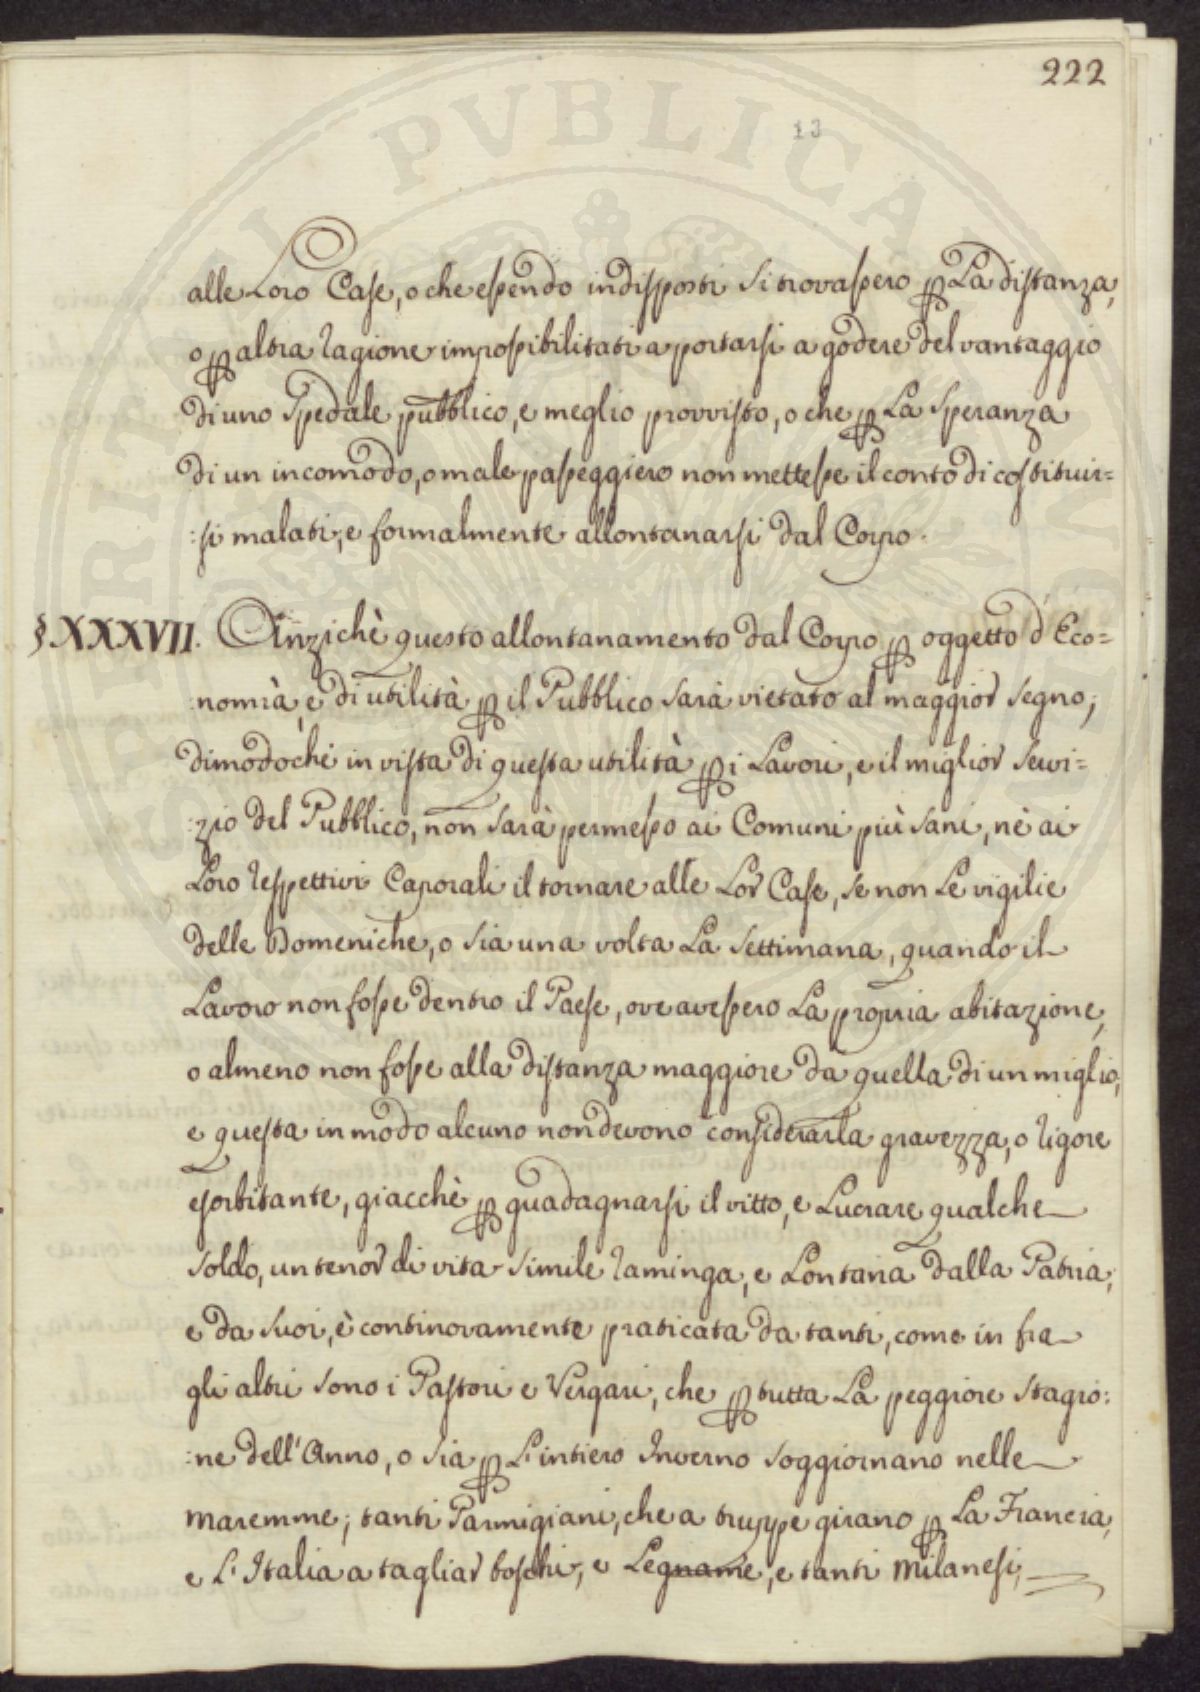 222
13
alle Loro Case, o che essendo indisposti si trovassero p La distanza,
o p altra ragione impossibilitati a portarsi a godere del vantaggio
di uno Spedale pubblico, e meglio provvisto, o che p La Speranza
di un incomodo, o male passeggiero non mettesse il conto di costituir=
:si malati, e formalmente allontanarsi dal Corpo.
§XXXVII. Anzichè questo allontanamento dal Corpo p oggetto d'Eco=
:nomìa, e di utilità p il Pubblico sarà vietato al maggior segno;
dimodochè in vista di questa utilità p i Lavori, e il miglior servi=
:zio del Pubblico, non sarà permesso ai Comuni più sani, nè ai
Loro respettivi Caporali il tornare alle Lor Case, se non Le vigilie
delle Domeniche, o sia una volta La settimana, quando il
Lavoro non fosse dentro il Paese, ove avessero La propria abitazione,
o almeno non fosse alla distanza maggiore da quella di un miglio,
e questa in modo alcuno non devono considerarla gravezza, o rigore
esorbitante, giacchè p guadagnarsi il vitto, e Lucrare qualche
soldo, un tenor di vita simile raminga, e Lontana dalla Patria,
e da suoi, è continovamente praticata da tanti, come in fra
gli altri sono i Pastori e Vergari, che p tutta La peggiore stagio:
:ne dell'Anno, o sia p L'intiero Inverno soggiornano nelle
maremme; tanti Parmigiani, che a truppe girano p La Francia,
e L'Italia a tagliar boschi, e Legname, e tanti Milanesi,
PERITI PVBLICAE